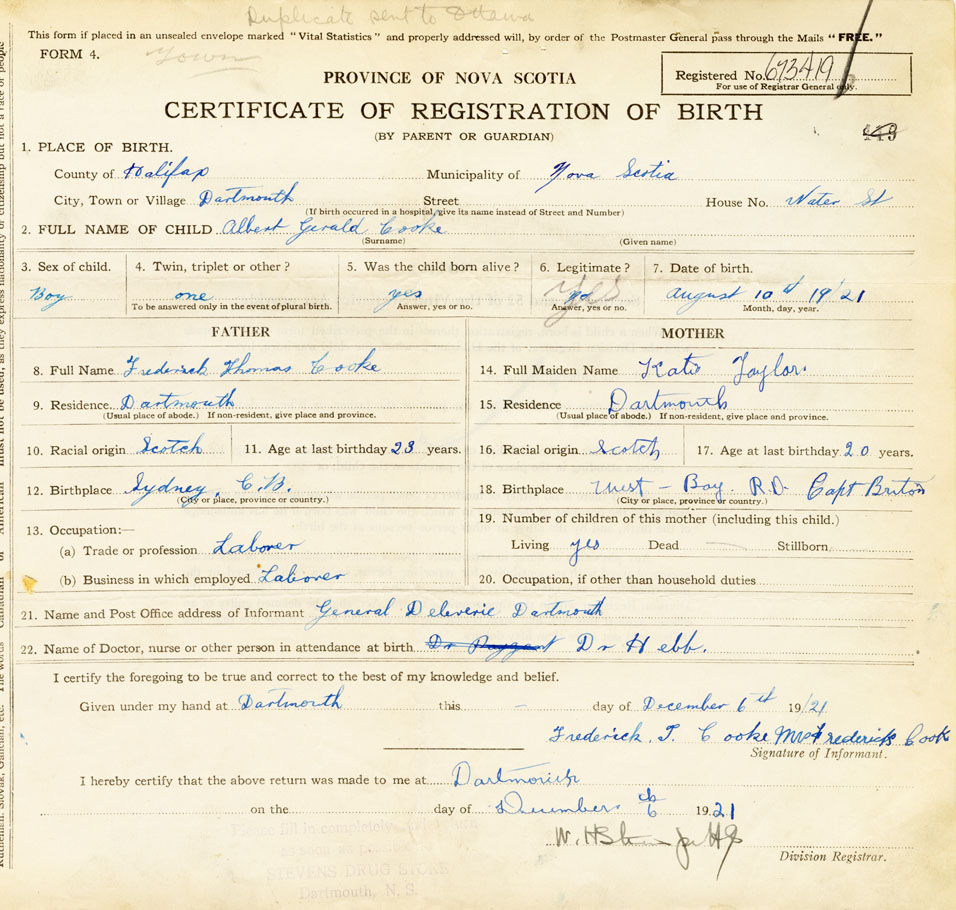 Duplicate sent to Ottawa
This form if placed in an unsealed envelope marked "Vital Statistics" and properly addressed will, by order of the Postmaster General pass through the Mails "FREE."
FORM 4.
Town
PROVINCE OF NOVA SCOTIA
Registered No. 673419
For use of Registrar General only.
CERTIFICATE OF REGISTRATION OF BIRTH
(BY PARENT OR GUARDIAN)
449
1. PLACE OF BIRTH.
County of Halifax Municipality of Nova Scotia
City, Town or Village Dartmouth Street House No. Water St
(If birth occurred in a hospital, give its name instead of Street and Number)
2. FULL NAME OF CHILD Albert Gerald Cooke
(Surname) (Given name)
3. Sex of child. 4. Twin, triplet or other? 5. Was the child born alive? 6. Legitimate? 7. Date of birth.
Boy one yes no Yes August 10st 1921
To be answered only in the event of plural birth. Answer, yes or no. Answer, yes or no. Month, day, year.
FATHER MOTHER
8. Full Name Frederick Thomas Cooke 14. Full Maiden Name Katie Taylor.
9. Residence Dartmouth 15. Residence Dartmouth
(Usual place of abode.) If non-resident, give place and province. (Usual place of abode.) If non-resident, give place and province.
10. Racial origin Scotch 11. Age at last birthday 23 years. 16. Racial origin Scotch 17. Age at last birthday 20 years.
12. Birthplace Sydney, C.B. 18. Birthplace West - Bay. R.D. Capt Briton
(City or place, province or country.) (City or place, province or country.)
13. Occupation:— 19. Number of children of this mother (including this child.)
(a) Trade or profession Laborer Living yes Dead Stillborn
(b) Business in which employed Laborer 20. Occupation, if other than household duties
21. Name and Post Office address of Informant General Deleverie Dartmouth
22. Name of Doctor, nurse or other person in attendance at birth Dr Dr Hebb.
I certify the foregoing to be true and correct to the best of my knowledge and belief.
Given under my hand at Dartmouth this - day of December 6th 19/21
Frederick. T. Cooke Mrs Fredericks Cook
Signature of Informant.
I hereby certify that the above return was made to me at Dartmouth
on the day of December 6 1921
Please fill in completely
as soon as
STEVENS DRUG STORE
Dartmouth, N. S.
W. H
Division Registrar.